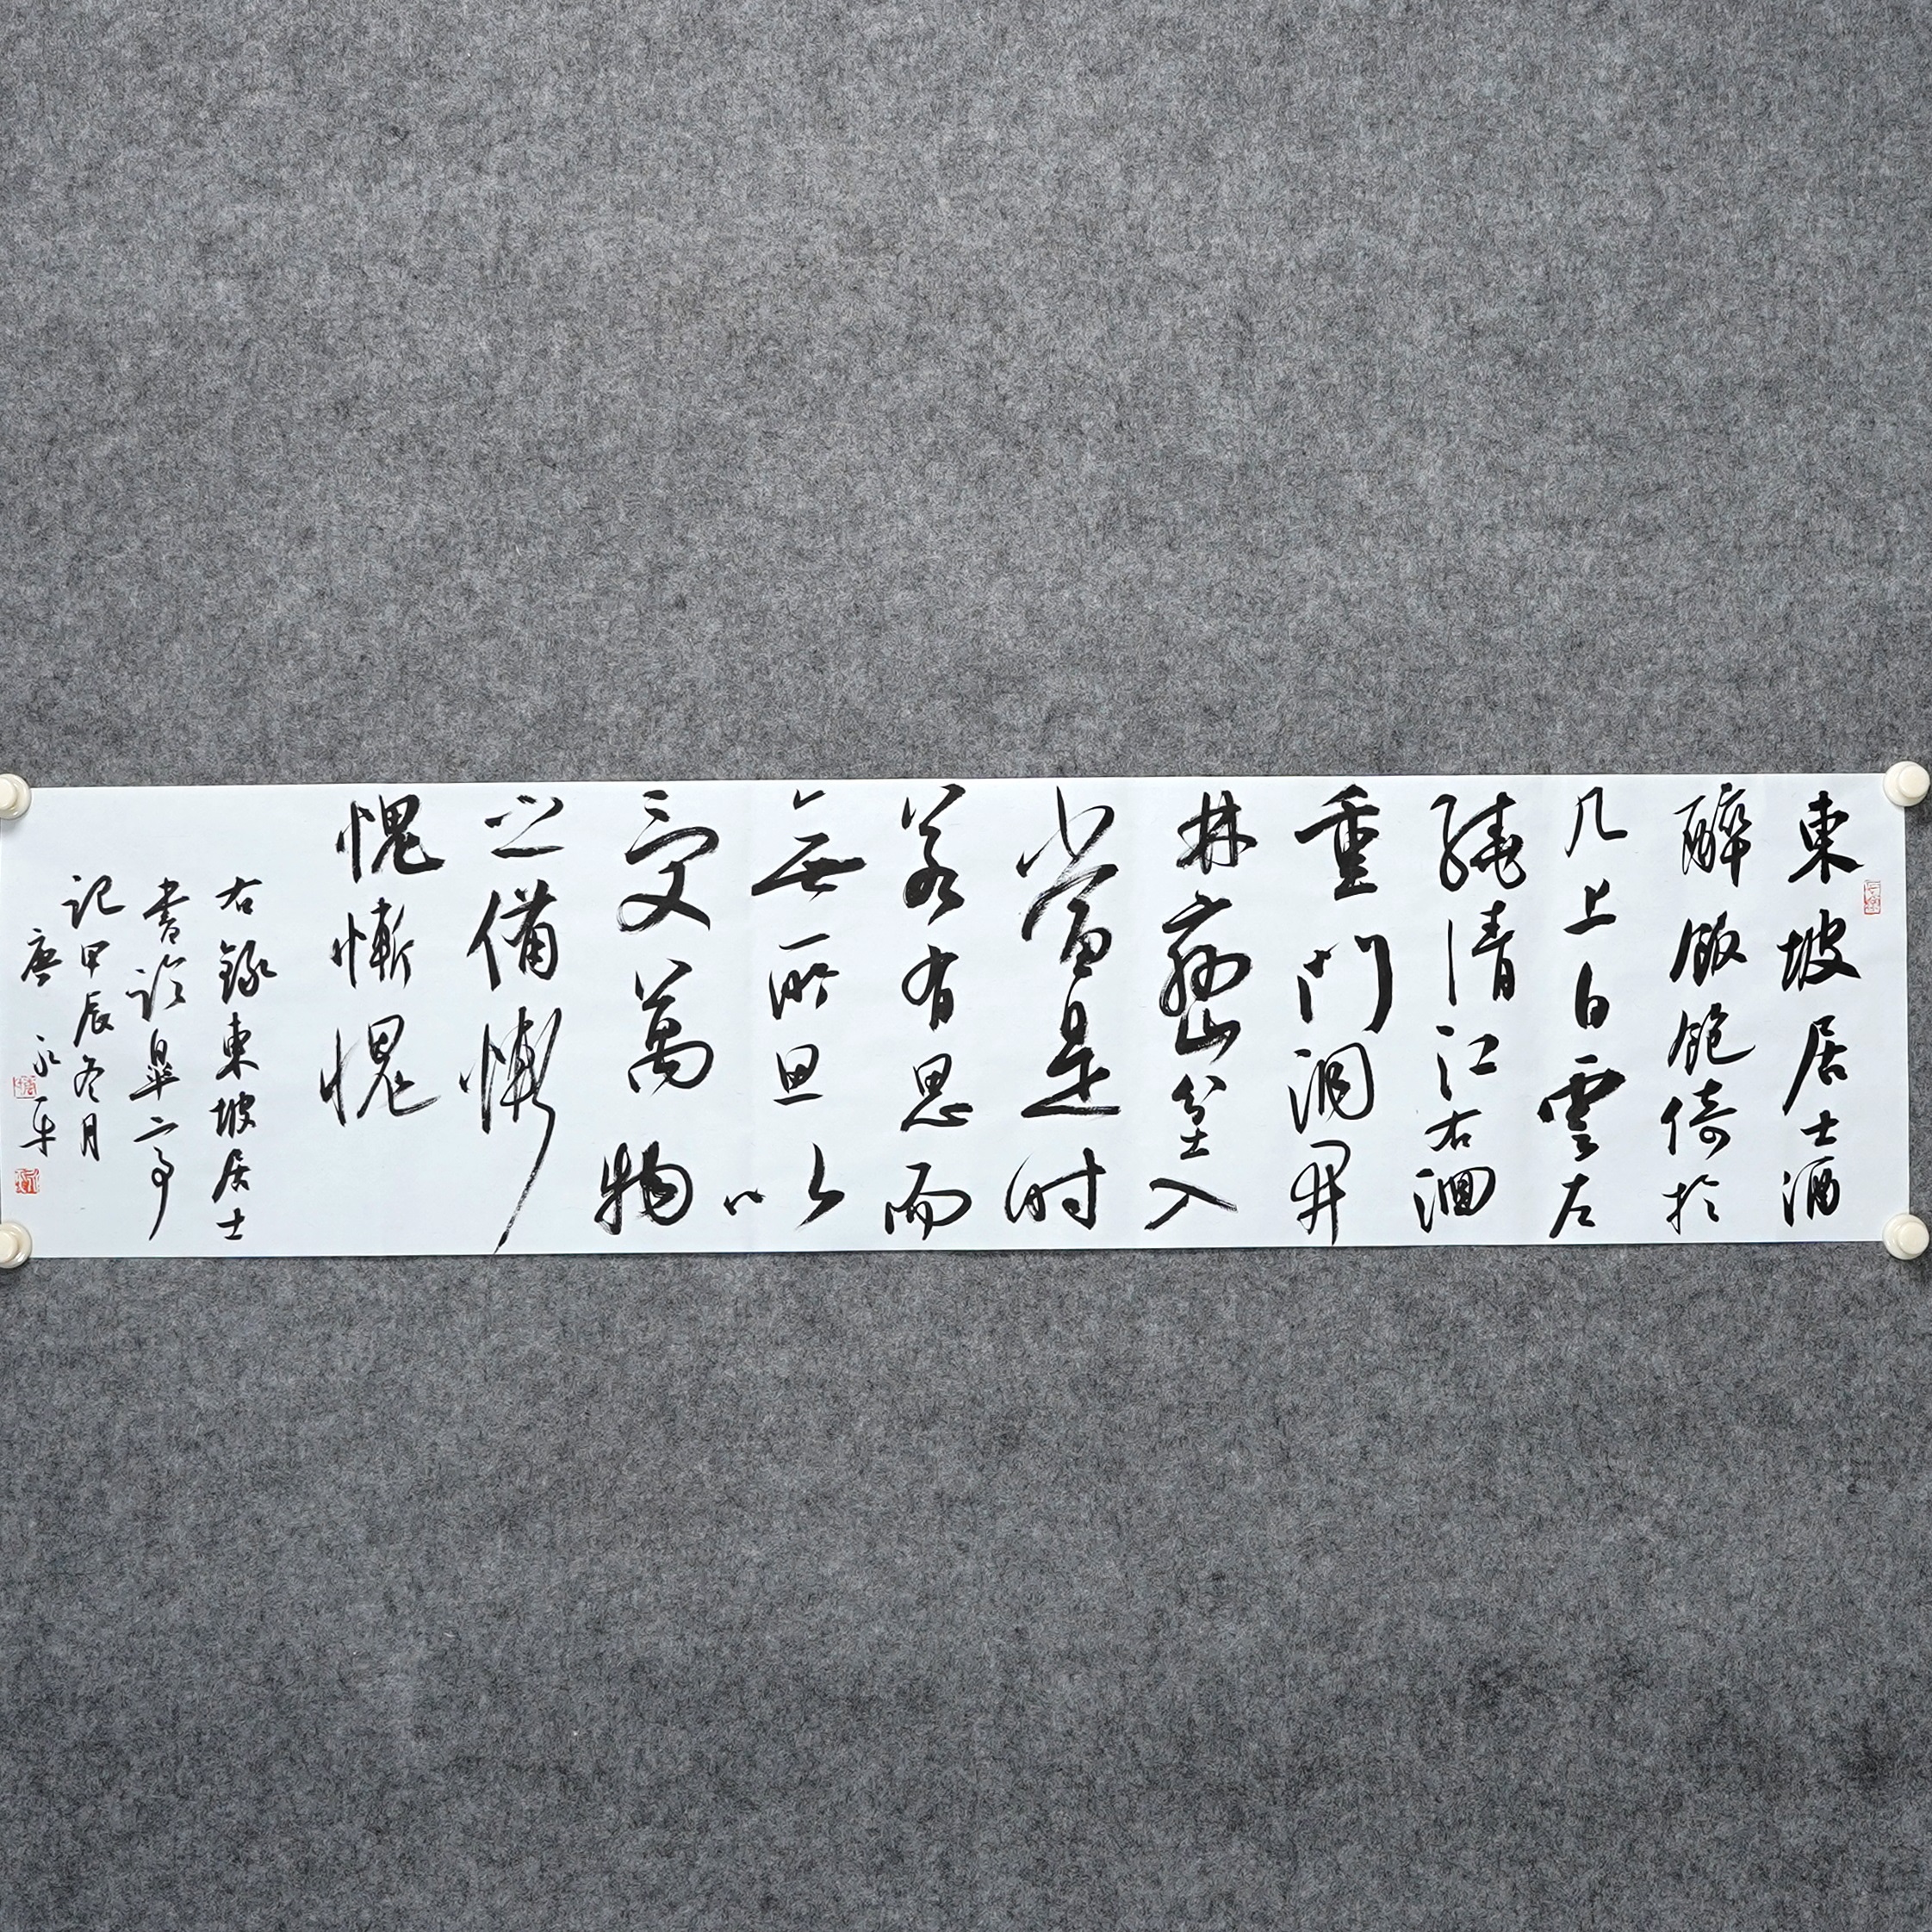 東坡居士酒
醉飯飽倚於
几上白雲左
繞清江右洄
重門洞開
林巒坌入
當是时
若有思而
無所思以
受萬物
之備慚
愧慚愧
右錄東坡居士
書臨皋亭
記甲辰冬月
唐永平